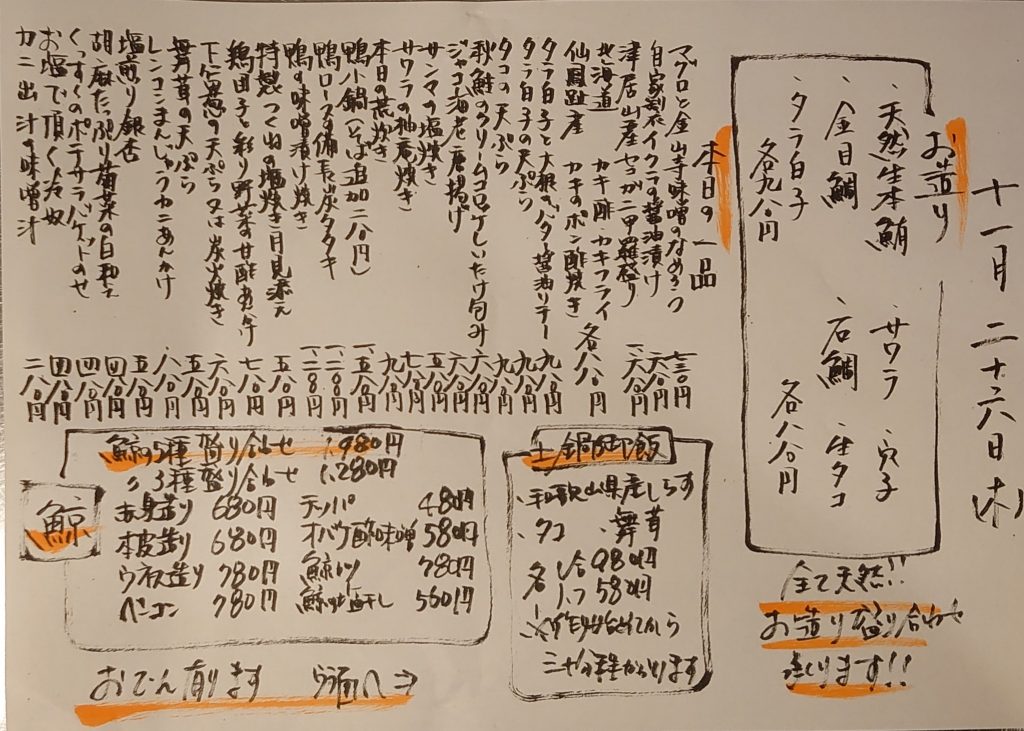 十一月 二十六日(木)
お造り
・天然生本鮪 ・サワラ ・穴子
・金目鯛 ・石鯛 ・生タコ
・タラ白子 各八八〇円
各九八〇円
全て天然!!
お造り盛り合わせ
造ります!!
本日の一品
マグロと金山寺味噌のなめろう 七三〇円
自家製イクラの醤油漬け 六八〇円
津居山産セコガニ甲羅盛り 一、六八〇円
北海道 カキ酢・カキフライ
仙鳳趾産 カキのポン酢焼き 各八八〇円
タラ白子と大根のバター醤油ソテー 九八〇円
タラ白子の天ぷら 九八〇円
タコの天ぷら 九八〇円
秋鮭のクリームコロッケしいたけ包み 六八〇円
ジャコ海老唐揚げ 六八〇円
サンマの塩焼き 五八〇円
サワラの柚庵焼き 七八〇円
本日の荒炊き 九八〇円
鴨小鍋(そば追加二八〇円) 一、五八〇円
鴨ロースの備長炭タタキ 一、二八〇円
鴨の味噌漬け焼き 一、二八〇円
特製つくねの塩焼き 月見添え 五八〇円
鶏団子と彩り野菜の甘酢あんかけ 七八〇円
下仁田葱の天ぷら又は炭火焼き 六八〇円
舞茸の天ぷら 五八〇円
レンコンまんじゅうカニあんかけ 八八〇円
塩煎り銀杏 五八〇円
胡麻たっぷり菊菜の白和え 四八〇円
くんすくのポテサラバゲットのせ 四八〇円
お塩で頂く冷奴 四八〇円
カニ出汁の味噌汁 二八〇円
土鍋御飯
・和歌山県産しらす
・タコ ・舞茸
各 1合 980円
1/2 580円
三十分程かかります
鯨
鯨の5種盛り合わせ 1,980円
〃 3種盛り合わせ 1,280円
赤身造り 680円 テッパ 480円
本皮造り 680円 オバケ酢味噌 580円
ウネス造り 780円 鯨カツ 780円
ベーコン 780円 鯨の一夜干し 560円
おでん有ります 裏面へ⇒